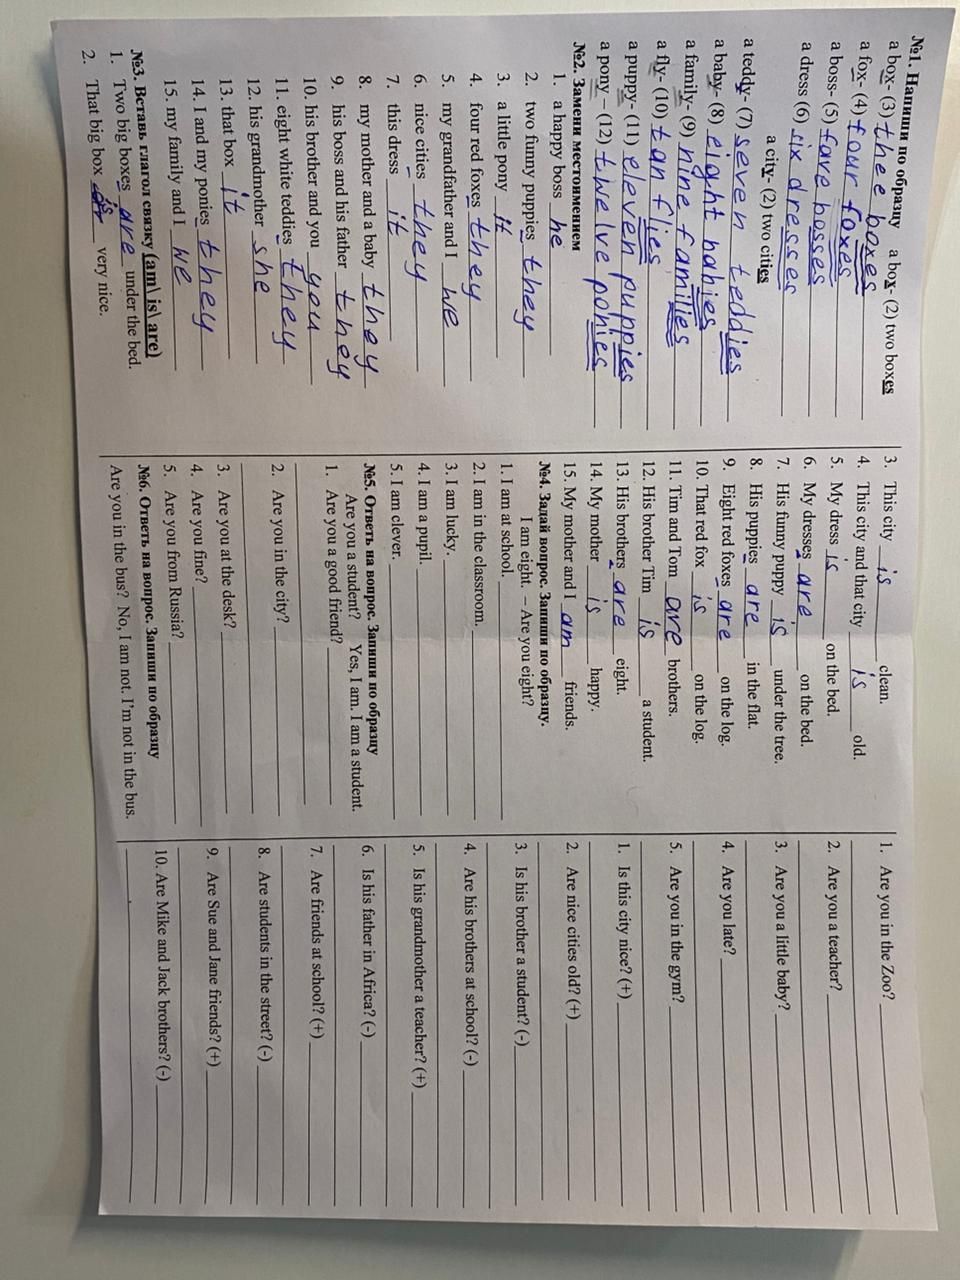 №1. Напиши по образцу a box- (2) two boxes
a box- (3) thee boxes
a fox- (4) four foxes
a boss- (5) fave bosses
a dress (6) six dresses
a city- (2) two cities
a teddy- (7) seven teddies
a baby- (8) eight babies
a family- (9) nine families
a fly- (10) tan flies
a puppy- (11) eleven puppies
a pony – (12) twelve ponies
№2. Замени местоимением
1. a happy boss he
2. two funny puppies they
3. a little pony it
4. four red foxes they
5. my grandfather and I we
6. nice cities they
7. this dress it
8. my mother and a baby they
9. his boss and his father they
10. his brother and you you
11. eight white teddies they
12. his grandmother she
13. that box it
14. I and my ponies they
15. my family and I we
№3. Вставь глагол связку (am\ is\ are)
1. Two big boxes are under the bed.
2. That big box is very nice.
3. This city is clean.
4. This city and that city is old.
5. My dress is on the bed.
6. My dresses are on the bed.
7. His funny puppy is under the tree.
8. His puppies are in the flat.
9. Eight red foxes are on the log.
10. That red fox is on the log.
11. Tim and Tom are brothers.
12. His brother Tim is a student.
13. His brothers are eight.
14. My mother is happy.
15. My mother and I am friends.
№4. Задай вопрос. Запиши по образцу.
I am eight. – Are you eight?
1. I am at school.
2. I am in the classroom.
3. I am lucky.
4. I am a pupil.
5. I am clever.
№5. Ответь на вопрос. Запиши по образцу
Are you a student? Yes, I am. I am a student.
1. Are you a good friend?
2. Are you in the city?
3. Are you at the desk?
4. Are you fine?
5. Are you from Russia?
№6. Ответь на вопрос. Запиши по образцу
Are you in the bus? No, I am not. I'm not in the bus.
1. Are you in the Zoo?
2. Are you a teacher?
3. Are you a little baby?
4. Are you late?
5. Are you in the gym?
1. Is this city nice? (+)
2. Are nice cities old? (+)
3. Is his brother a student? (-)
4. Are his brothers at school? (-)
5. Is his grandmother a teacher? (+)
6. Is his father in Africa? (-)
7. Are friends at school? (+)
8. Are students in the street? (-)
9. Are Sue and Jane friends? (+)
10. Are Mike and Jack brothers? (-)